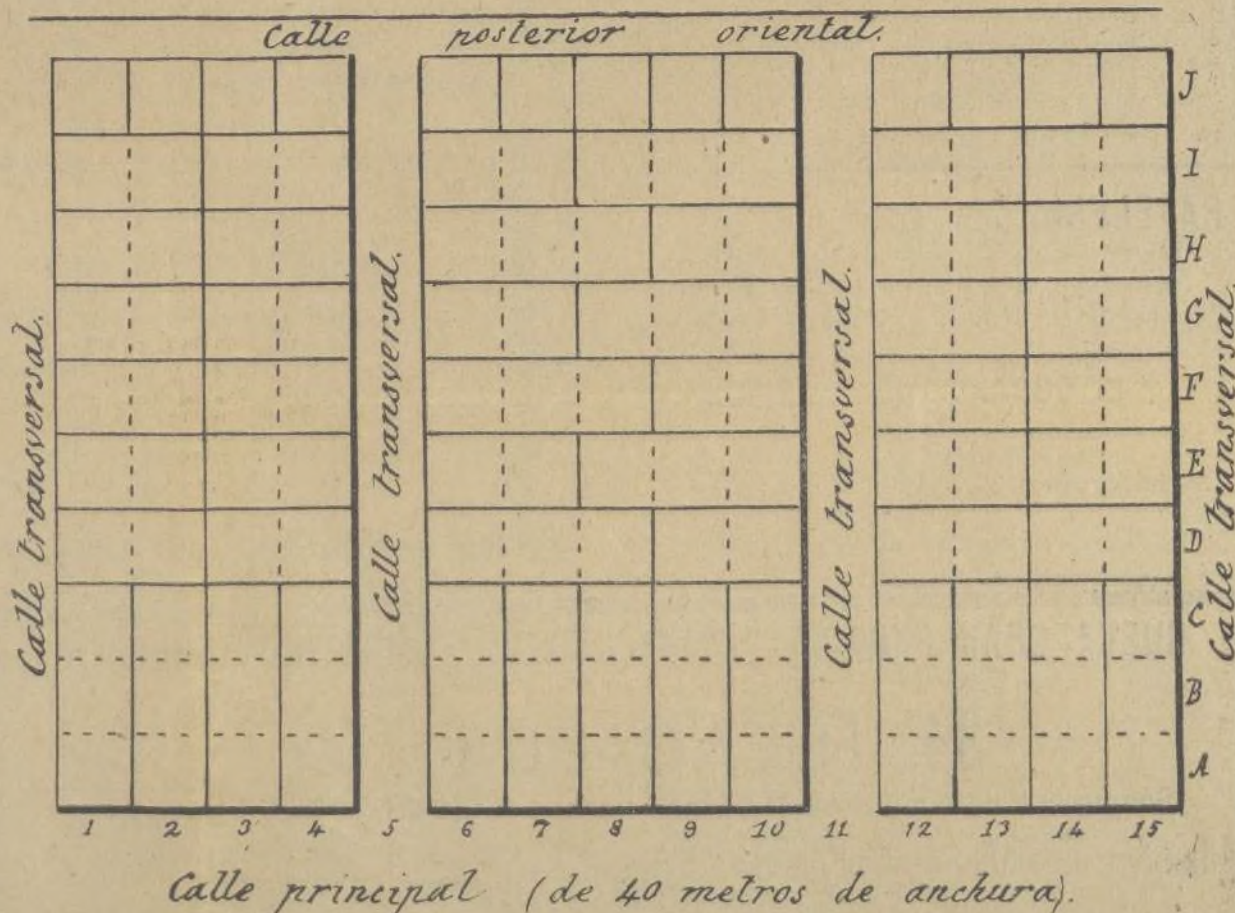 Calle posterior oriental.
J
I
H
G
F
E
D
C
B
A
Calle transversal.
Calle transversal.
Calle transversal.
Calle transversal.
1 2 3 4 5 6 7 8 9 10 11 12 13 14 15
Calle principal (de 40 metros de anchura).